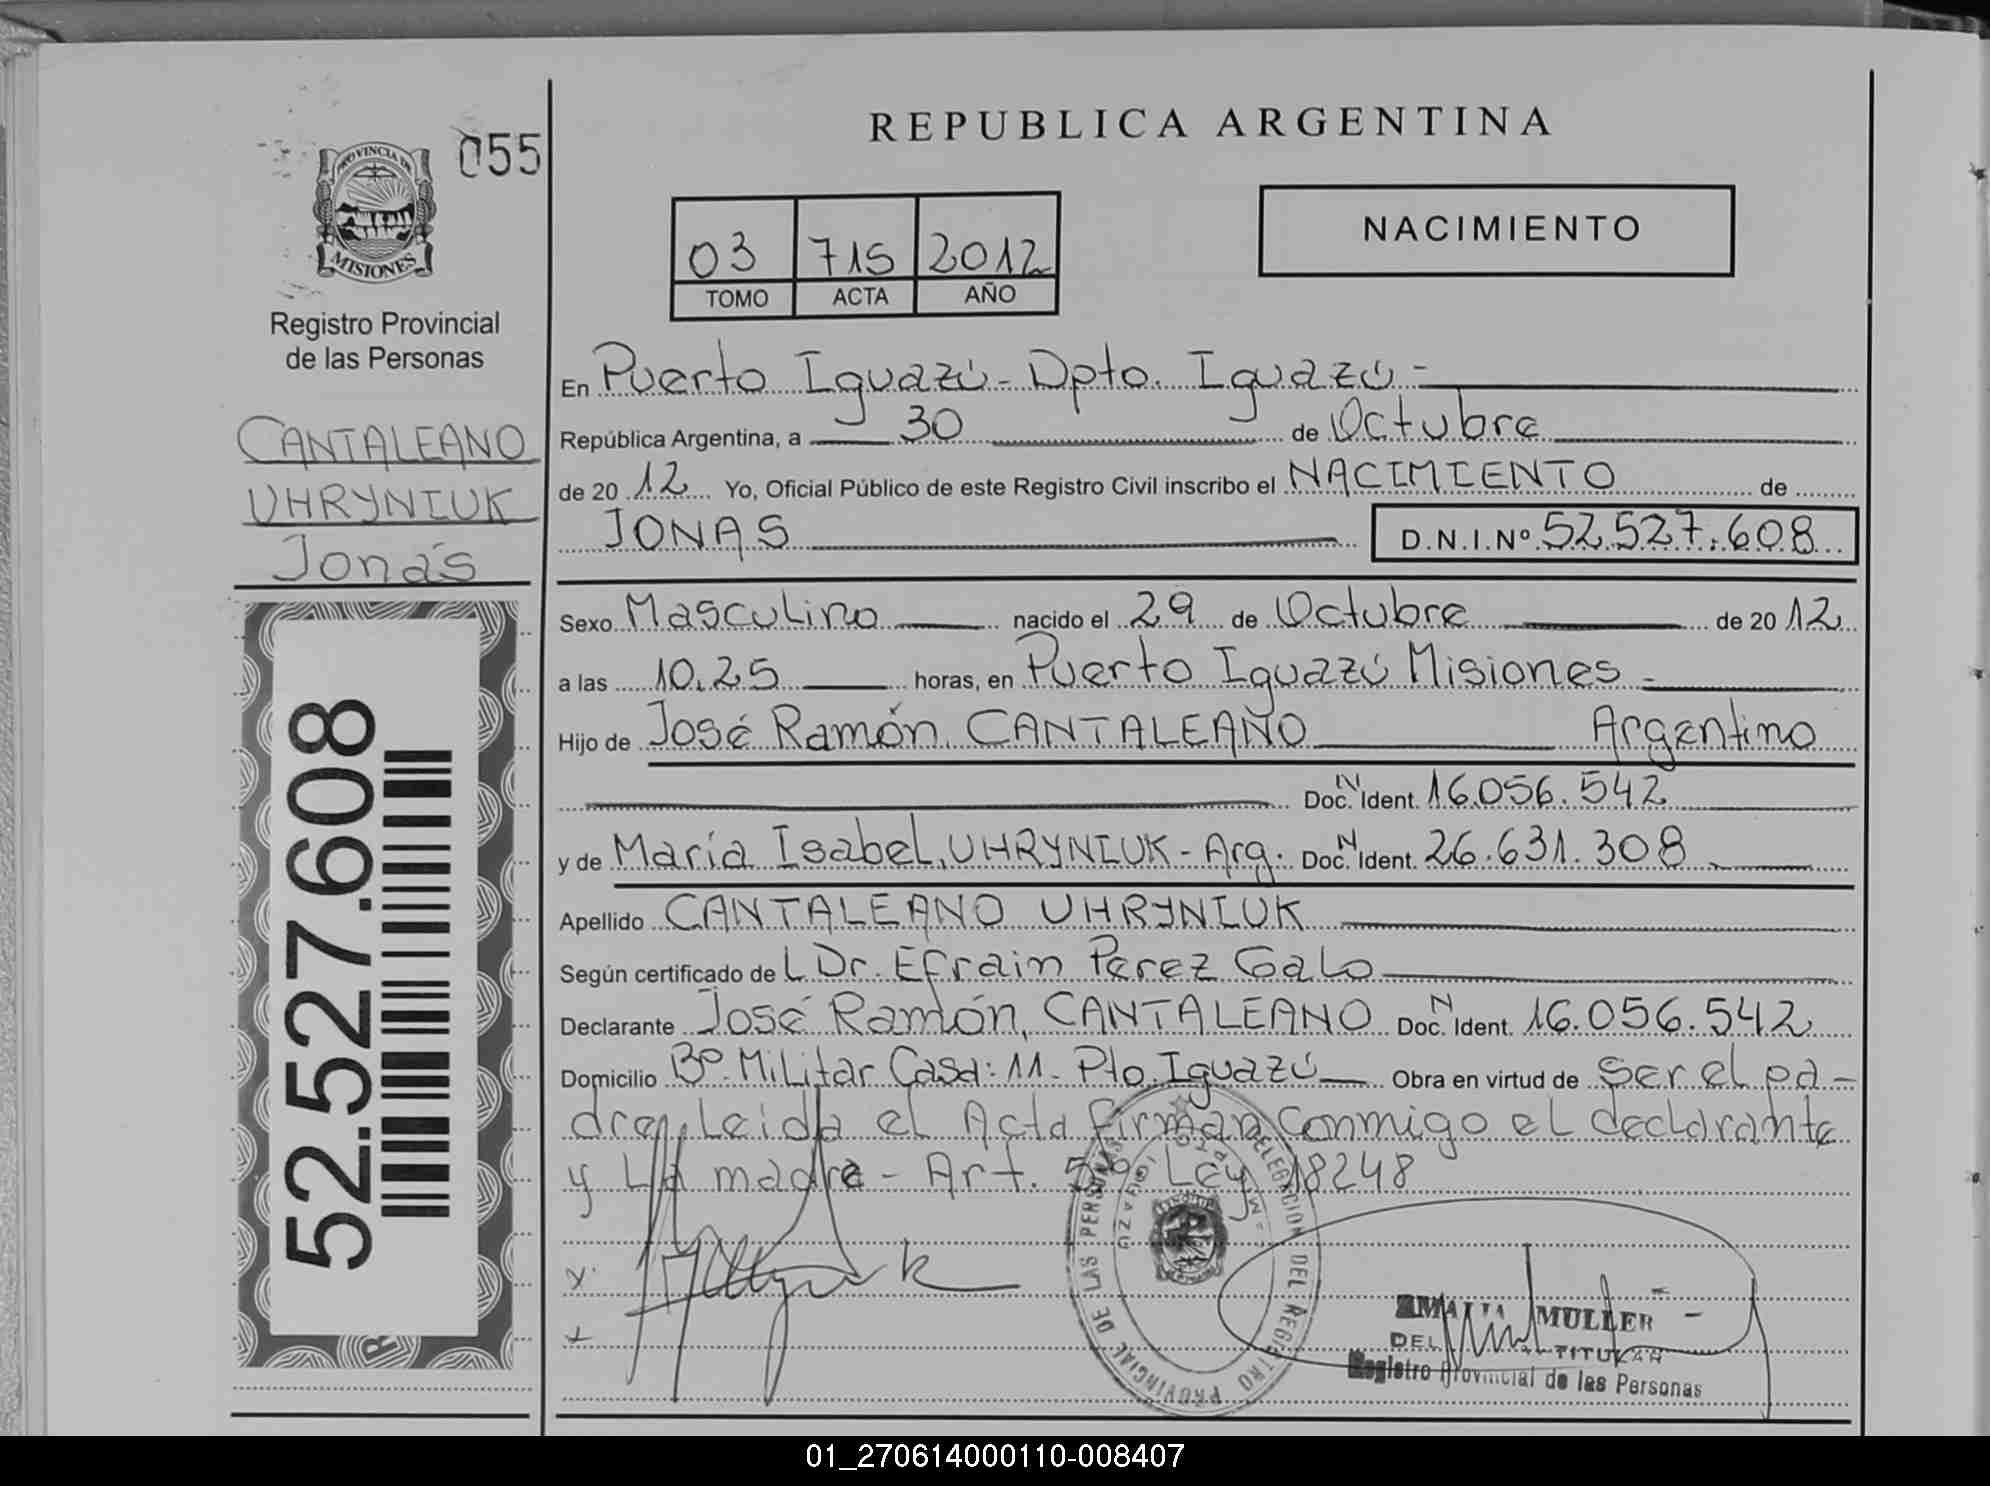 REPUBLICA ARGENTINA
055
PROVINCIA DE
MISIONES
Registro Provincial
de las Personas
CANTALEANO
UHRYNIUK
Jonás
52.527.608
03 715 2012
TOMO ACTA AÑO
NACIMIENTO
En Puerto Iguazú - Dpto. Iguazú -
República Argentina, a 30 de Octubre
de 20 12 Yo, Oficial Público de este Registro Civil inscribo el NACIMIENTO de
JONAS D.N.I.Nº 52.527.608
Sexo Masculino nacido el 29 de Octubre de 20 12
a las 10.25 horas, en Puerto Iguazú Misiones -
Hijo de José Ramón, CANTALEANO Argentino
Doc. N Ident. 16.056.542
y de María Isabel, UHRYNIUK - Arg. Doc. N Ident. 26.631.308
Apellido CANTALEANO UHRYNIUK
Según certificado de L Dr. Efrain Perez Galo
Declarante José Ramón, CANTALEANO Doc. N Ident. 16.056.542
Domicilio Bº. Militar Casa: 11 - Pto. Iguazú Obra en virtud de ser el pa-
dre, Leida el Acta firman conmigo el declarante
y La madre - Art. 5º Ley 18248
DELEGACION DEL REGISTRO PROVINCIAL DE LAS PERSONAS
AMALIA MULLER
DEL TITULAR
Registro Provincial de las Personas
01_270614000110-008407